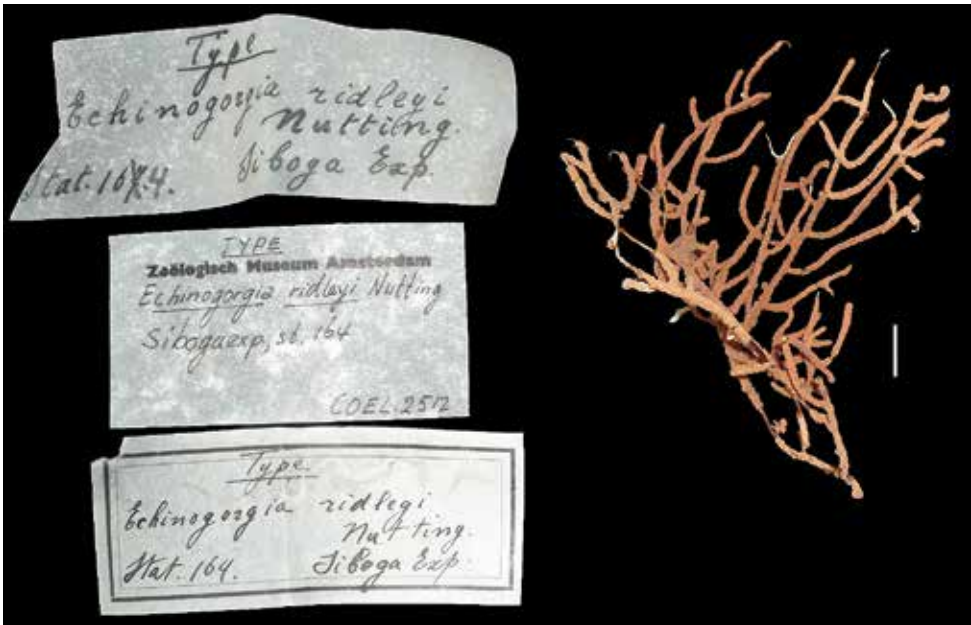 Type
Echinogorgia ridleyi
Nutting.
Stat. 164.
Siboga Exp.
TYPE
Zoölogisch Museum Amsterdam
Echinogorgia ridleyi Nutting
Sibogaexp, st. 164
COEL.
Type.
Echinogorgia ridleyi
Nutting.
Stat. 164.
Siboga Exp.